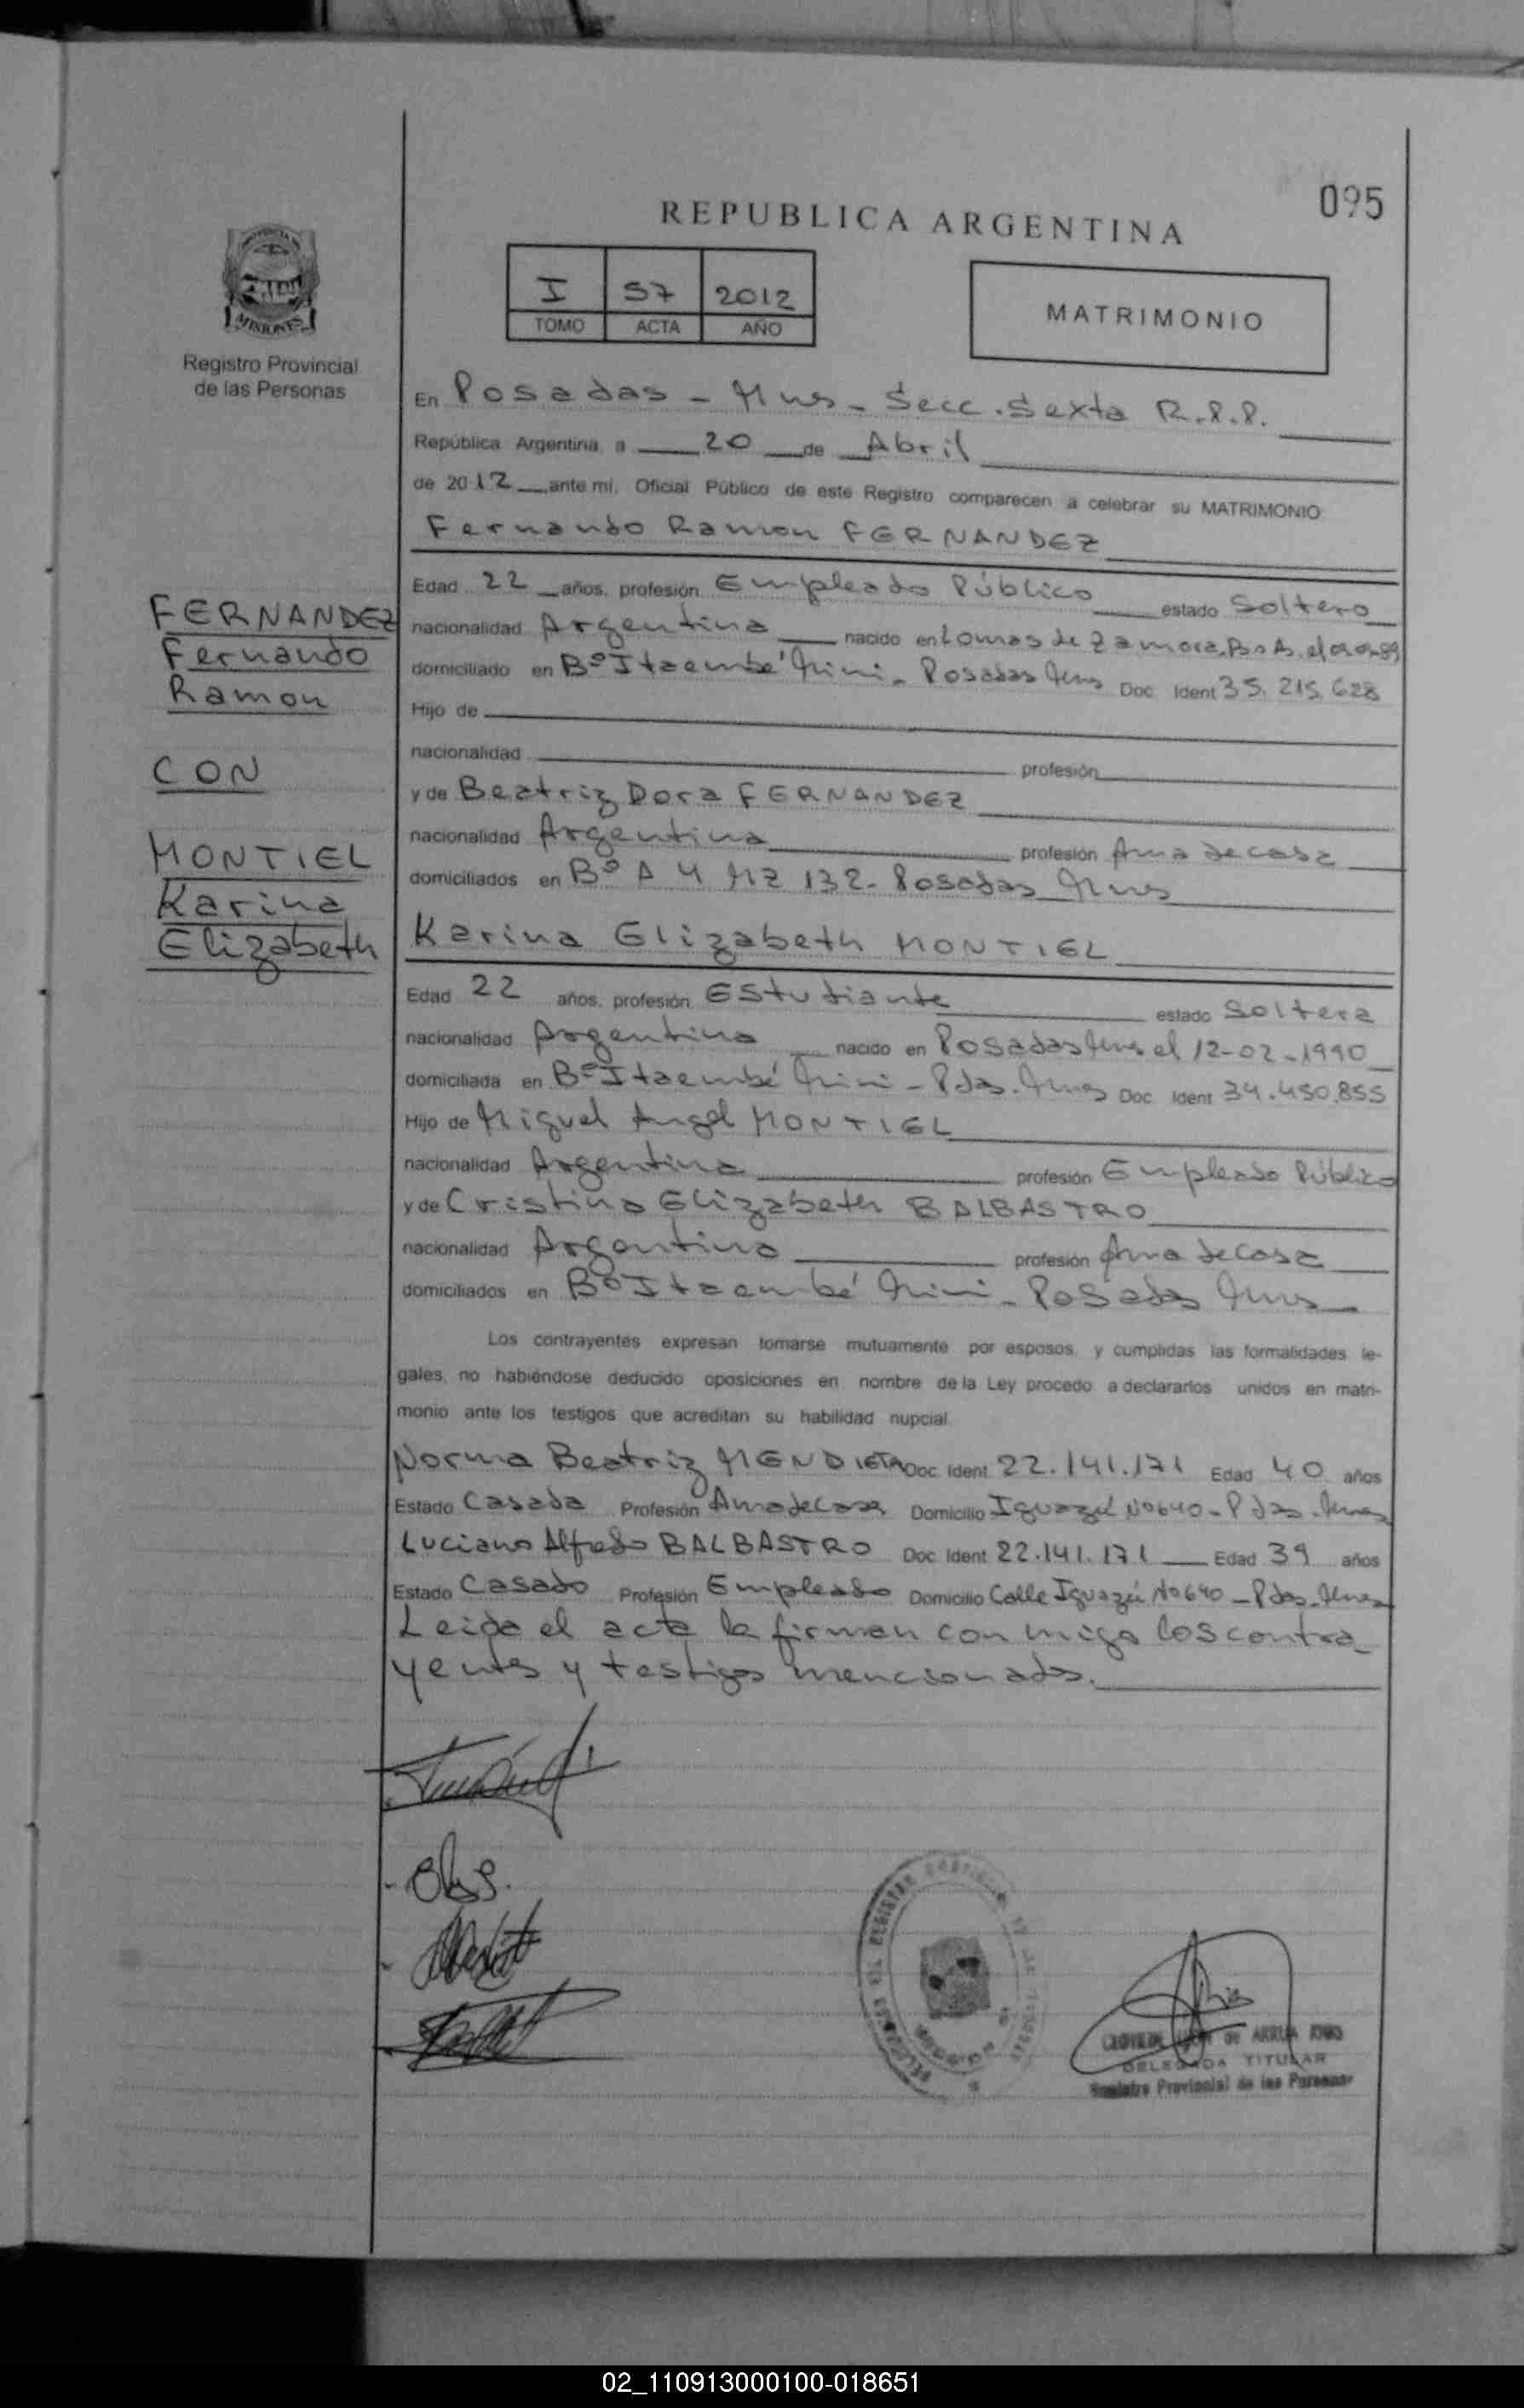 095
REPUBLICA ARGENTINA
I 57 2012
TOMO ACTA AÑO
MATRIMONIO
MISIONES
Registro Provincial
de las Personas
En Posadas - Mnes - Secc. Sexta R.P.P.
República Argentina, a 20 de Abril
de 2012 ante mí, Oficial Público de este Registro comparecen a celebrar su MATRIMONIO:
Fernando Ramon FERNANDEZ
Edad 22 años, profesión Empleado Público estado Soltero
nacionalidad Argentina nacido en Lomas de Zamora, Bs As. el
domiciliado en Bº Itaembé Mini - Posadas Mnes Doc. Ident 35.215.628
Hijo de
nacionalidad profesión
y de Beatriz Dora FERNANDEZ
nacionalidad Argentina profesión Ama de casa
domiciliados en Bº A 4 MZ 132 - Posadas Mnes
Karina Elizabeth MONTIEL
Edad 22 años, profesión Estudiante estado Soltera
nacionalidad Argentina nacido en Posadas Mnes el 12-02-1990
domiciliada en Bº Itaembé Mini - Pdas. Mnes Doc. Ident 34.450.855
Hijo de Miguel Angel MONTIEL
nacionalidad Argentina profesión Empleado Público
y de Cristina Elizabeth BALBASTRO
nacionalidad Argentina profesión Ama de Casa
domiciliados en Bº Itaembé Mini - Posadas Mnes
Los contrayentes expresan tomarse mutuamente por esposos, y cumplidas las formalidades le-
gales, no habiéndose deducido oposiciones en nombre de la Ley procedo a declararlos unidos en matri-
monio ante los testigos que acreditan su habilidad nupcial.
Norma Beatriz MENDIETA Doc. Ident 22.141.171 Edad 40 años
Estado Casada Profesión Ama de Casa Domicilio Iguazú Nº 640 - Pdas. Mnes
Luciano Alfredo BALBASTRO Doc. Ident 22.141.171 Edad 39 años
Estado Casado Profesión Empleado Domicilio Calle Iguazú Nº 640 - Pdas. Mnes
Leida el acta la firman con migo los contra-
yentes y testigos mencionados.
FERNANDEZ
Fernando
Ramon
CON
MONTIEL
Karina
Elizabeth
de ARRUA
DELEGADA TITULAR
Registro Provincial de las Personas
02_110913000100-018651